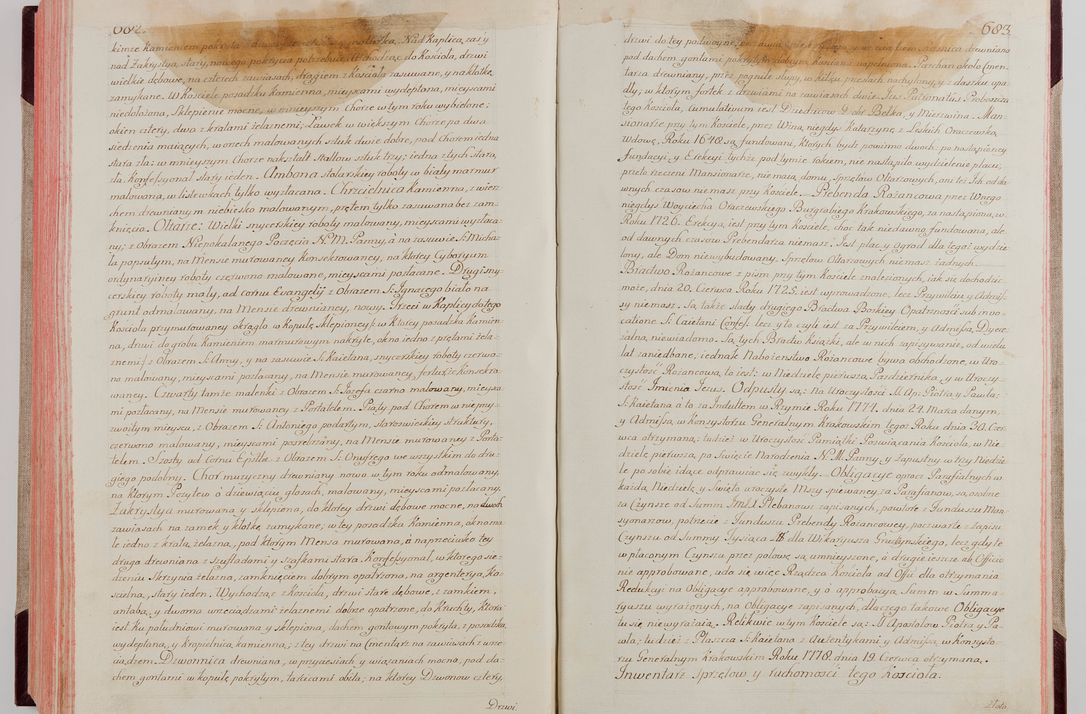 682.
nad Zakrystyą stary, nowego pokrycia potrzebuie. Wchodząc do Kościoła, drzwi
wielkie dębowe, na czterech zawiasach, drągiem z Kościoła zasuwane, y na klotkę
zamykane. W Kościele posadzka kamienna, mieyscami wydeptana, mieyscami
niedolożona, Sklepienie mocne, w mnieyszym Chorze w tym roku wybielone;
okien cztery, dwa z kratami żelaznemi; Ławek w większym Chorze po dwa
siedzenia maiących, w orzech malowanych sztuk dwie dobre, pod Chorem iedna
stara zła: w mnieyszym Chorze nakształt Stallow sztuk trzy; iedna z tych stara,
zła. Konfessyonał stary ieden. Ambona stolarskiey roboty w biały marmur
malowana, w listewkach tylko wyzłacana. Chrzcielnica kamienna, z wierz-
chem drewnianym niebiesko malowanym, prętem tylko zasuwana bez zam-
knięcia. Ołtarze: Wielki snycerskiey roboty malowany, mieyscami wyzłaca-
ny; z Obrazem Niepokalanego Poczęcia N. M. Panny, a na zasuwie S. Micha-
ła popsutym, na Mensie murowaney Konsekrowaney, na ktorey Cyboryum
ordynaryiney roboty czerwono malowane, mieyscami pozłacane. Drugi sny-
cerskiey roboty mały, ad cornu Evangelij z Obrazem S. Ignacego biało na
grunt odmalowany, na Mensie drewnianey, nowy. Trzeci w Kaplicy do tego
Kościoła przymurowaney okrągło w Kopułę sklepioney; w ktorey posadzka kamien-
na, drzwi do grobu kamieniem marmurowym nakryte, okno iedno z prętami żela-
znemi; z Obrazem S. Anny, y na zasuwie S. Kaietana, snycerskiey roboty czerwo-
no malowany, mieyscami pozłacany, na Mensie murowaney, portatile Konsekro-
waney. Czwarty tamże maleńki z Obrazem S. Jozefa czarno malowany, mieysca-
mi pozłacany, na Mensie murowaney z Portatelem. Piąty pod Chorem w nieprzy-
zwoitym mieyscu, z Obrazem S. Antoniego podartym, staroswieckiey struktury,
czerwono malowany, mieyscami posrebrzany, na Mensie murowaney z Porta-
telem. Szosty ad Cornu Epistlæ z Obrazem S. Onufrego we wszystkim do dru-
giego podobny. Chor muzyczny drewniany nowo w tym roku odmalowany,
na ktorym Pozytew o dziewiąciu głosach, malowany, mieyscami pozłacany.
Zakrystya murowana y sklepiona, do ktorey drzwi dębowe mocne, na dwoch
zawiasach na zamek y klotkę zamykane, w tey posadzka kamienna, okno ma-
łe iedno z kratą żelazną, pod ktorym Mensa murowana, a naprzeciwko tey
druga drewniana z szufladami y szafkami stara. Konfessyonał, w ktorego sie-
dzeniu skrzynia żelazna, zamknięciem dobrym opatrzona, na argenterya Ko-
scielna, stary ieden. Wychodząc z Kościoła, drzwi stare dębowe, z zamkiem,
antabą, y dwoma wrzeciądzami żelaznemi dobrze opatrzone, do Kruchty, ktora
iest ku południowi murowana y sklepiona, dachem gontowym pokryta, z posadzką
wydeptaną, y kropielnicą kamienną; z tey drzwi na Cmentarz na zawiasach z wrze-
ciądzem. Dzwonnica drewniana, w przyciesiach y wiązaniach mocna, pod da-
chem gontami w kopułę pokrytym, tarcicami obita; na ktorey Dzwonow cztery,
Drzwi.
683
tarza drewniany, przez pognite słupy, w kilku przęsłach nachylony, z daszku opa-
dły, w ktorym fortek z drzwiami na zawiasach dwie. Jus Patronatus: Proboszcza
tego Kościoła, Cumulativum iest Dziedzicow Dobr Bełka, y Mierzwina. Man-
sionarze przy tym Kościele, przez Wżną niegdyś Katarzynę z Leskich Oraczewską
Wdowę, Roku 1648. są fundowani, ktorych być powinno dwoch: po nastąpioney
fundacyi, y Erekcyi tychże pod tymże rokiem, nie nastąpiło wydzielenie placu,
przeto rzeczeni Mansionarze, nie maią domu, Sprzętow Ołtarzowych, ani też Ich od da-
wnych czasow nie masz przy Kościele. Præbenda Rożancowa przez Wżnego
niegdyś Woyciecha Otaczewskiego Burgrabiego Krakowskiego, za nastąpioną, w
Roku 1726. Erekcyą, iest przy tym Kościele, choc tak niedawno fundowana, ale
od dawnych czasow Prebendarza niemasz. Jest plac y ogrod dla tegoż wydzie-
lony, ale Dom niewybudowany. Sprzętow Ołtarzowych nie masz żadnych.
Bractwo Rożancowe z pism przy tym Kościele znalezionych, iak się dochodzić
może, dnia 20. Czerwca Roku 1725. iest wprowadzone, lecz Przywileiu, y Admis-
sy niemasz. Są także ślady drugiego Bractwa Boskiey Opatrzności sub invo-
catione S. Caietani Confess. lecz y to czyli iest za Przywileiem, y Admissą, Dyece-
zalną, niewiadomo. Są tych Bractw Książki, ale w nich zapisywanie, od wielu
lat zaniedbane, iednakże Nabożeństwo Rożancowe bywa obchodzone, w Uro-
czystość Rożancową, to iest: w Niedzielę pierwszą Października, y w Uroczy-
stość Imienia Jezus. Odpusty są: Na Uroczystość SS. Ap. Piotra y Pawła;
S. Kaietana a to za Indultem w Rzymie Roku 1774. dnia 24. Marca danym,
y Admissą, w Konsystorzu Generalnym Krakowskim tegoż Roku dnia 30. Czer-
wca otrzymaną; tudzież w Uroczystość Pamiątki Poświącania Kościoła, w Nie-
dzielę pierwszą, po Święcie Narodzenia N. M. Panny, y Zapustny w trzy Niedzie-
le po sobie idące odprawiać się zwykły. Obligacye oprocz Parafialnych w
każdą Niedzielę, y Święta uroczyste Mszy śpiewaney za Parafianow, są osobne
za Czynsze od Summ JmXX Plebanowi zapisanych, powtore z Funduszu Man-
syonarzow, potrzecie z Funduszu Prebendy Rożancowey, poczwarte z zapisu
Czynszu od Summy Tysiąca # dla Wikaryusza Grudzynskiego, lecz gdy te
w płaconym Czynszu przez połowę są umnieyszone, a drugie ieszcze ab Officio
nie approbowane, uda się więc Rządzca Kościoła ad Offic: dla otrzymania
Redukcyi na Obligacye approbowane, y o approbacyą Summ w Summa-
ryuszu wyrażonych, na Obligacye zapisanych, dlaczego takowe Obligacye
tu się niewyrażaią. Relikwie w tym Kościele są: SS. Apostołow Piotra, y Pa-
wła; tudzież z Płaszcza S. Kaietana z Autentykami y Admissą, w Konsysto-
rzu Generalnym Krakowskim Roku 1778. dnia 19. Czerwca otrzymaną.
Inwentarz Sprzętow y ruchomości tego Kościoła.
Złoto